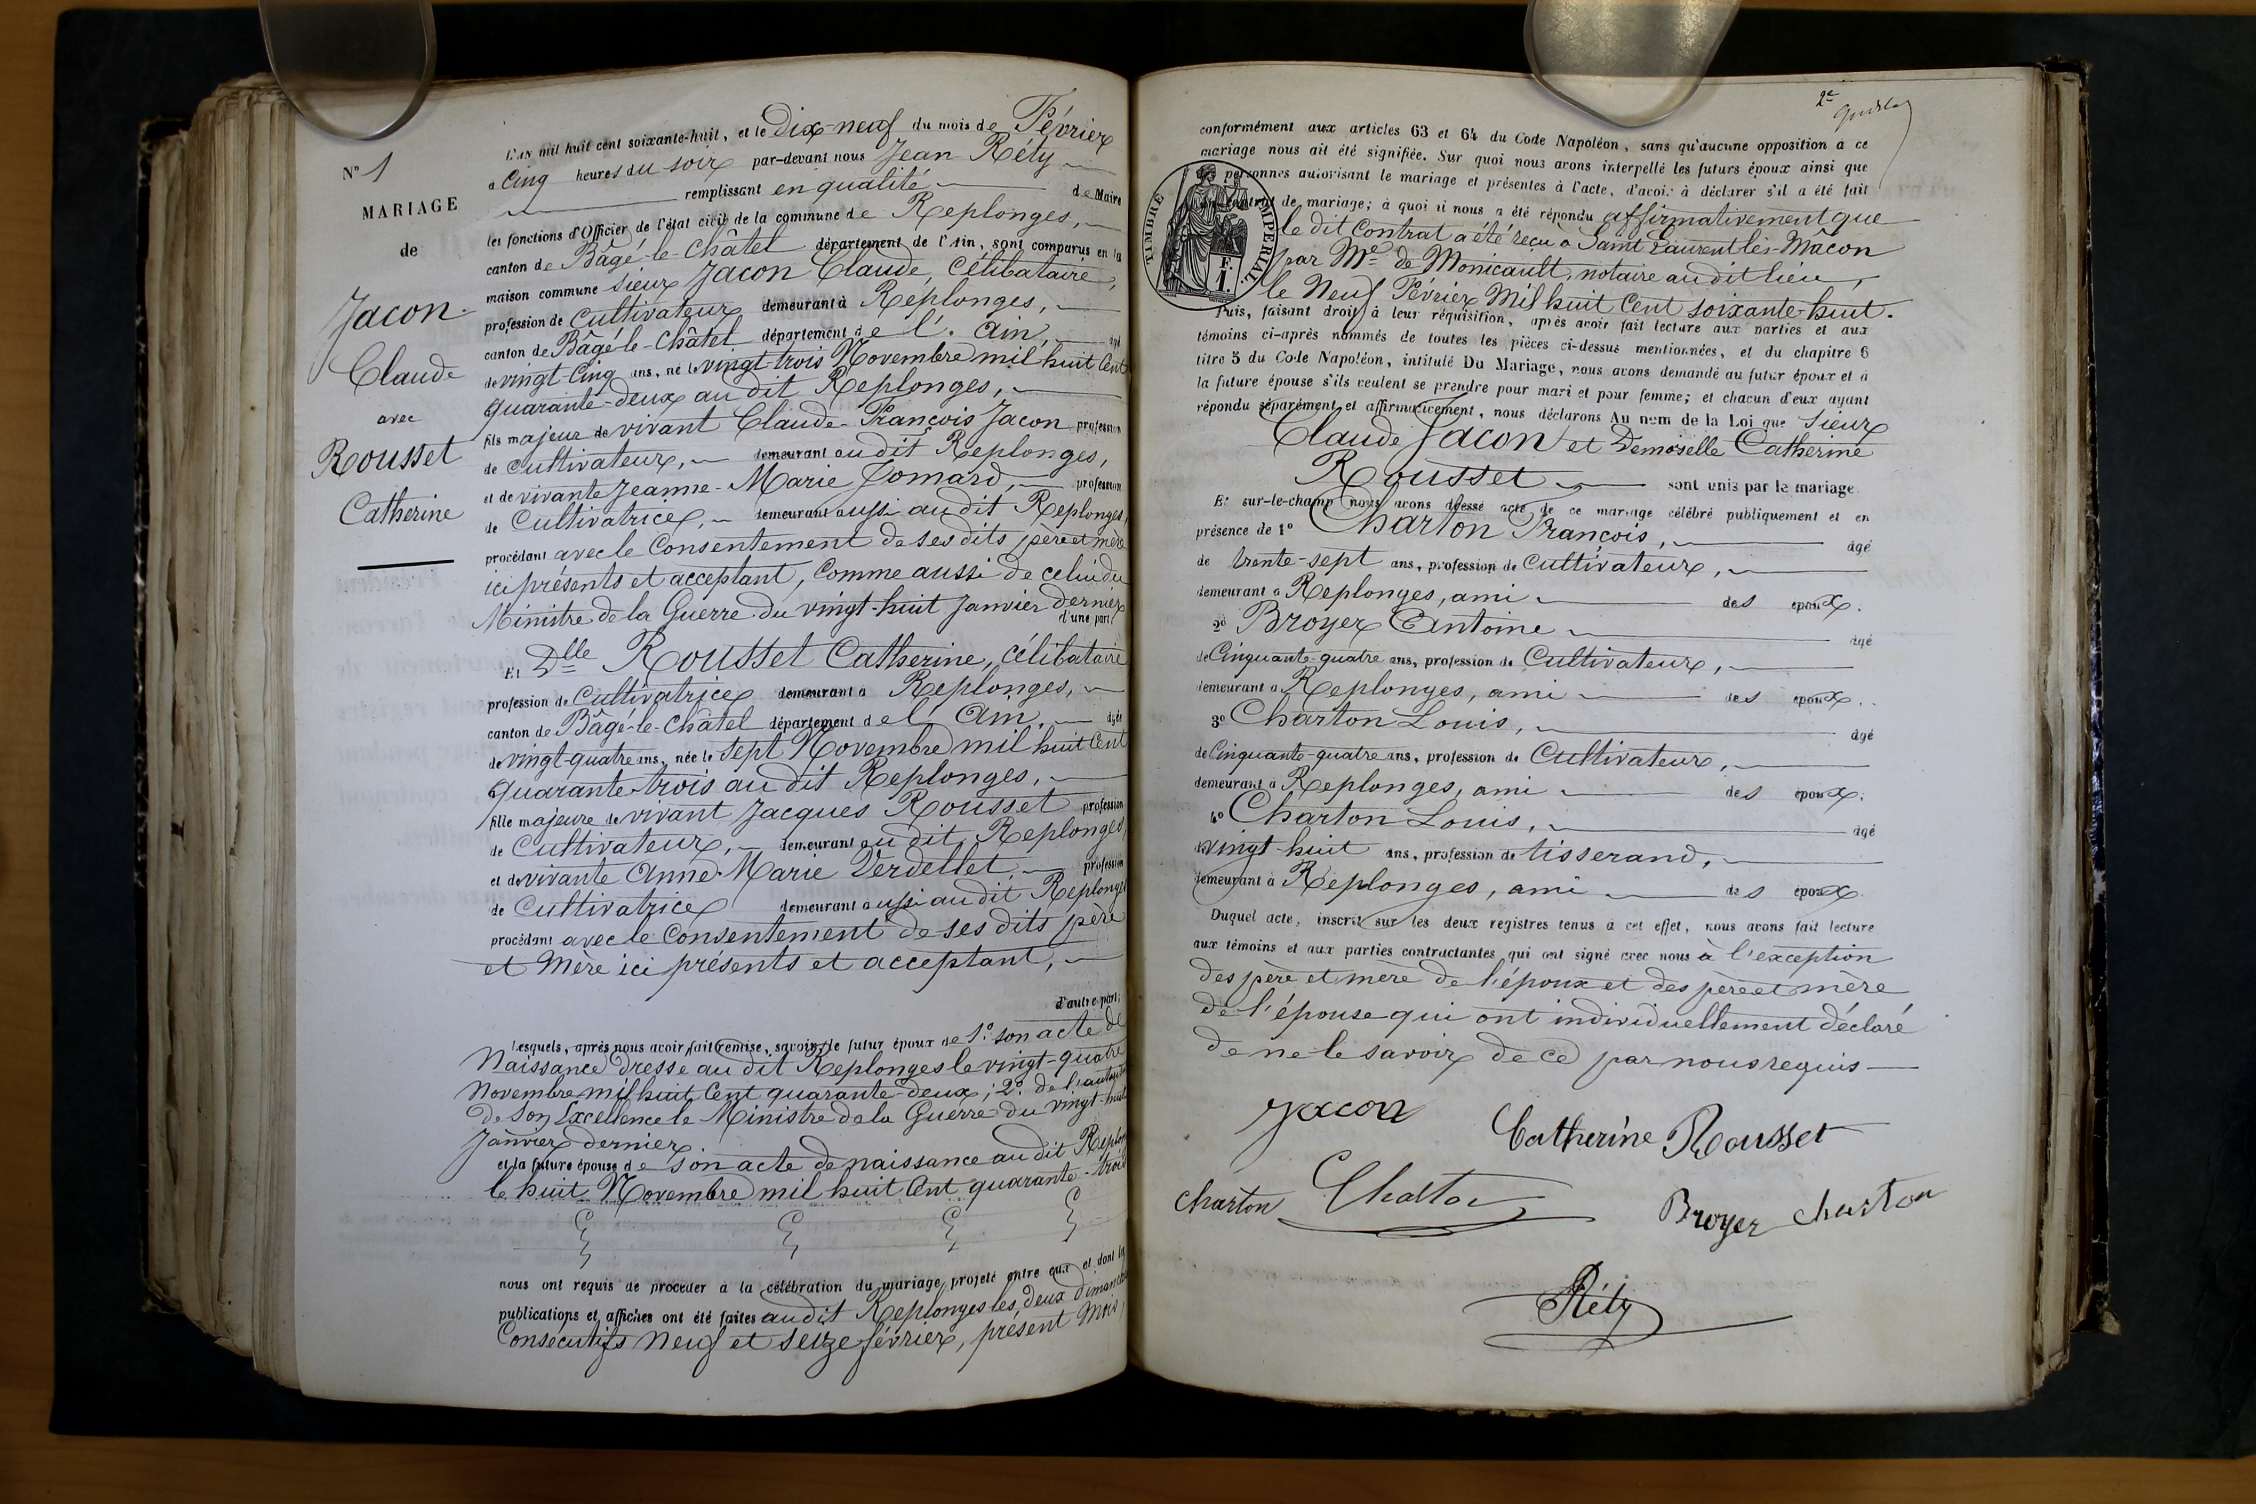 N° 1
MARIAGE
de
Jacon
Claude
avec
Rousset
Catherine
L'AN mil huit cent soixante-huit, et le Dix-neuf du mois de Février
a Cinq heures du soir par-devant nous Jean Réty
remplissant en qualité de Maire
les fonctions d'Officier de l'état civil de la commune de Replonges,
canton de Bâgé-le-Châtel département de l'Ain, sont comparus en la
maison commune sieur Jacon Claude, Célibataire,
profession de Cultivateur demeurant à Replonges,
canton de Bâgé-le-Châtel département de l'Ain, âgé
de vingt Cinq ans, né le vingt trois Novembre mil huit Cent
quarante-deux au dit Replonges,
fils majeur de vivant Claude-François Jacon profession
de Cultivateur, demeurant au dit Replonges,
et de vivante Jeanne-Marie Jomard, profession
de Cultivatrice, demeurant aussi au dit Replonges,
procédant avec le Consentement de ses dits père et mère
ici présents et acceptant, Comme aussi de celui du
Ministre de la Guerre du vingt-huit Janvier dernier
d'une part;
Et Dlle Rousset Catherine, célibataire
profession de Cultivatrice demeurant à Replonges,
canton de Bâgé-le-Châtel département de l'Ain, âgée
de vingt-quatre ans, née le sept Novembre mil huit Cent
quarante-trois au dit Replonges,
fille majeure de vivant Jacques Rousset profession
de Cultivateur, demeurant au dit Replonges,
et de vivante Anne-Marie Verdellet, profession
de Cultivatrice demeurant aussi au dit Replonges
procédant avec le Consentement de ses dits père
et Mère ici présents et acceptant,
d'autre part;
Lesquels, après nous avoir fait remise, savoir: le futur époux de 1° son acte de
Naissance dressé au dit Replonges le vingt-quatre
Novembre mil huit Cent quarante-deux; 2° de l'autorité
de Son Excellence le Ministre de la Guerre du vingt-huit
Janvier dernier
et la future épouse de son acte de naissance au dit Replon
le huit Novembre mil huit Cent quarante-trois
nous ont requis de procéder à la célébration du mariage projeté entre eux et dont les
publications et affiches ont été faites au dit Replonges les deux dimanches
Consécutifs Neuf et seize février, présent Mois,
2e
conformément aux articles 63 et 64 du Code Napoléon, sans qu'aucune opposition à ce
mariage nous ait été signifiée. Sur quoi nous avons interpellé les futurs époux ainsi que
personnes autorisant le mariage et présentes à l'acte, d'avoir à déclarer s'il a été fait
contrat de mariage; à quoi il nous a été répondu affirmativement que
le dit Contrat a été reçu à Saint Laurent lès-Mâcon
par Me de Monicault, notaire au dit lieu,
le Neuf Février Mil huit Cent soixante-huit.
TIMBRE IMPERIAL
F.
1.
Puis, faisant droit à leur réquisition, après avoir fait lecture aux parties et aux
témoins ci-après nommés de toutes les pièces ci-dessus mentionnées, et du chapitre 6
titre 5 du Code Napoléon, intitulé Du Mariage, nous avons demandé au futur époux et à
la future épouse s'ils veulent se prendre pour mari et pour femme; et chacun d'eux ayant
répondu séparément et affirmativement, nous déclarons Au nom de la Loi que Sieur
Claude Jacon et Demoiselle Catherine
Rousset sont unis par le mariage.
Et sur-le-champ nous avons dressé acte de ce mariage célébré publiquement et en
présence de 1° Charton François, âgé
de trente-sept ans, profession de Cultivateur,
demeurant à Replonges, ami des époux.
2° Broyer Antoine âgé
de Cinquante-quatre ans, profession de Cultivateur,
demeurant à Replonges, ami des époux.
3° Charton Louis, âgé
de Cinquante-quatre ans, profession de Cultivateur,
demeurant à Replonges, ami des époux.
4° Charton Louis, âgé
de vingt-huit ans, profession de tisserand,
demeurant à Replonges, ami des époux.
Duquel acte, inscrit sur les deux registres tenus à cet effet, nous avons fait lecture
aux témoins et aux parties contractantes qui ont signé avec nous à l'exception
des père et mère de l'époux et des père et mère
de l'épouse qui ont individuellement déclaré
de ne le savoir de ce par nous requis
Jacon
Catherine Rousset
Charton Charton Broyer Charton
Réty